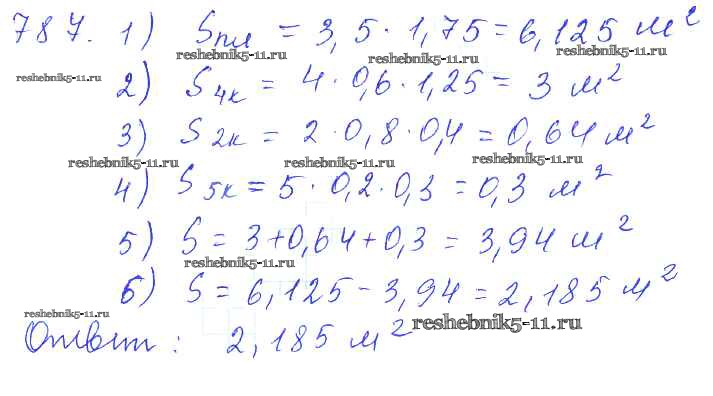 787. 1) Sпл = 3,5 · 1,75 = 6,125 м²
reshebnik5-11.ru reshebnik5-11.ru reshebnik5-11.ru
reshebnik5-11.ru
2) S4к = 4 · 0,6 · 1,25 = 3 м²
3) S2к = 2 · 0,8 · 0,4 = 0,64 м²
reshebnik5-11.ru reshebnik5-11.ru reshebnik5-11.ru
4) S5к = 5 · 0,2 · 0,3 = 0,3 м²
5) S = 3 + 0,64 + 0,3 = 3,94 м²
reshebnik5-11.ru
6) S = 6,125 - 3,94 = 2,185 м²
reshebnik5-11.ru
Ответ: 2,185 м²
reshebnik5-11.ru